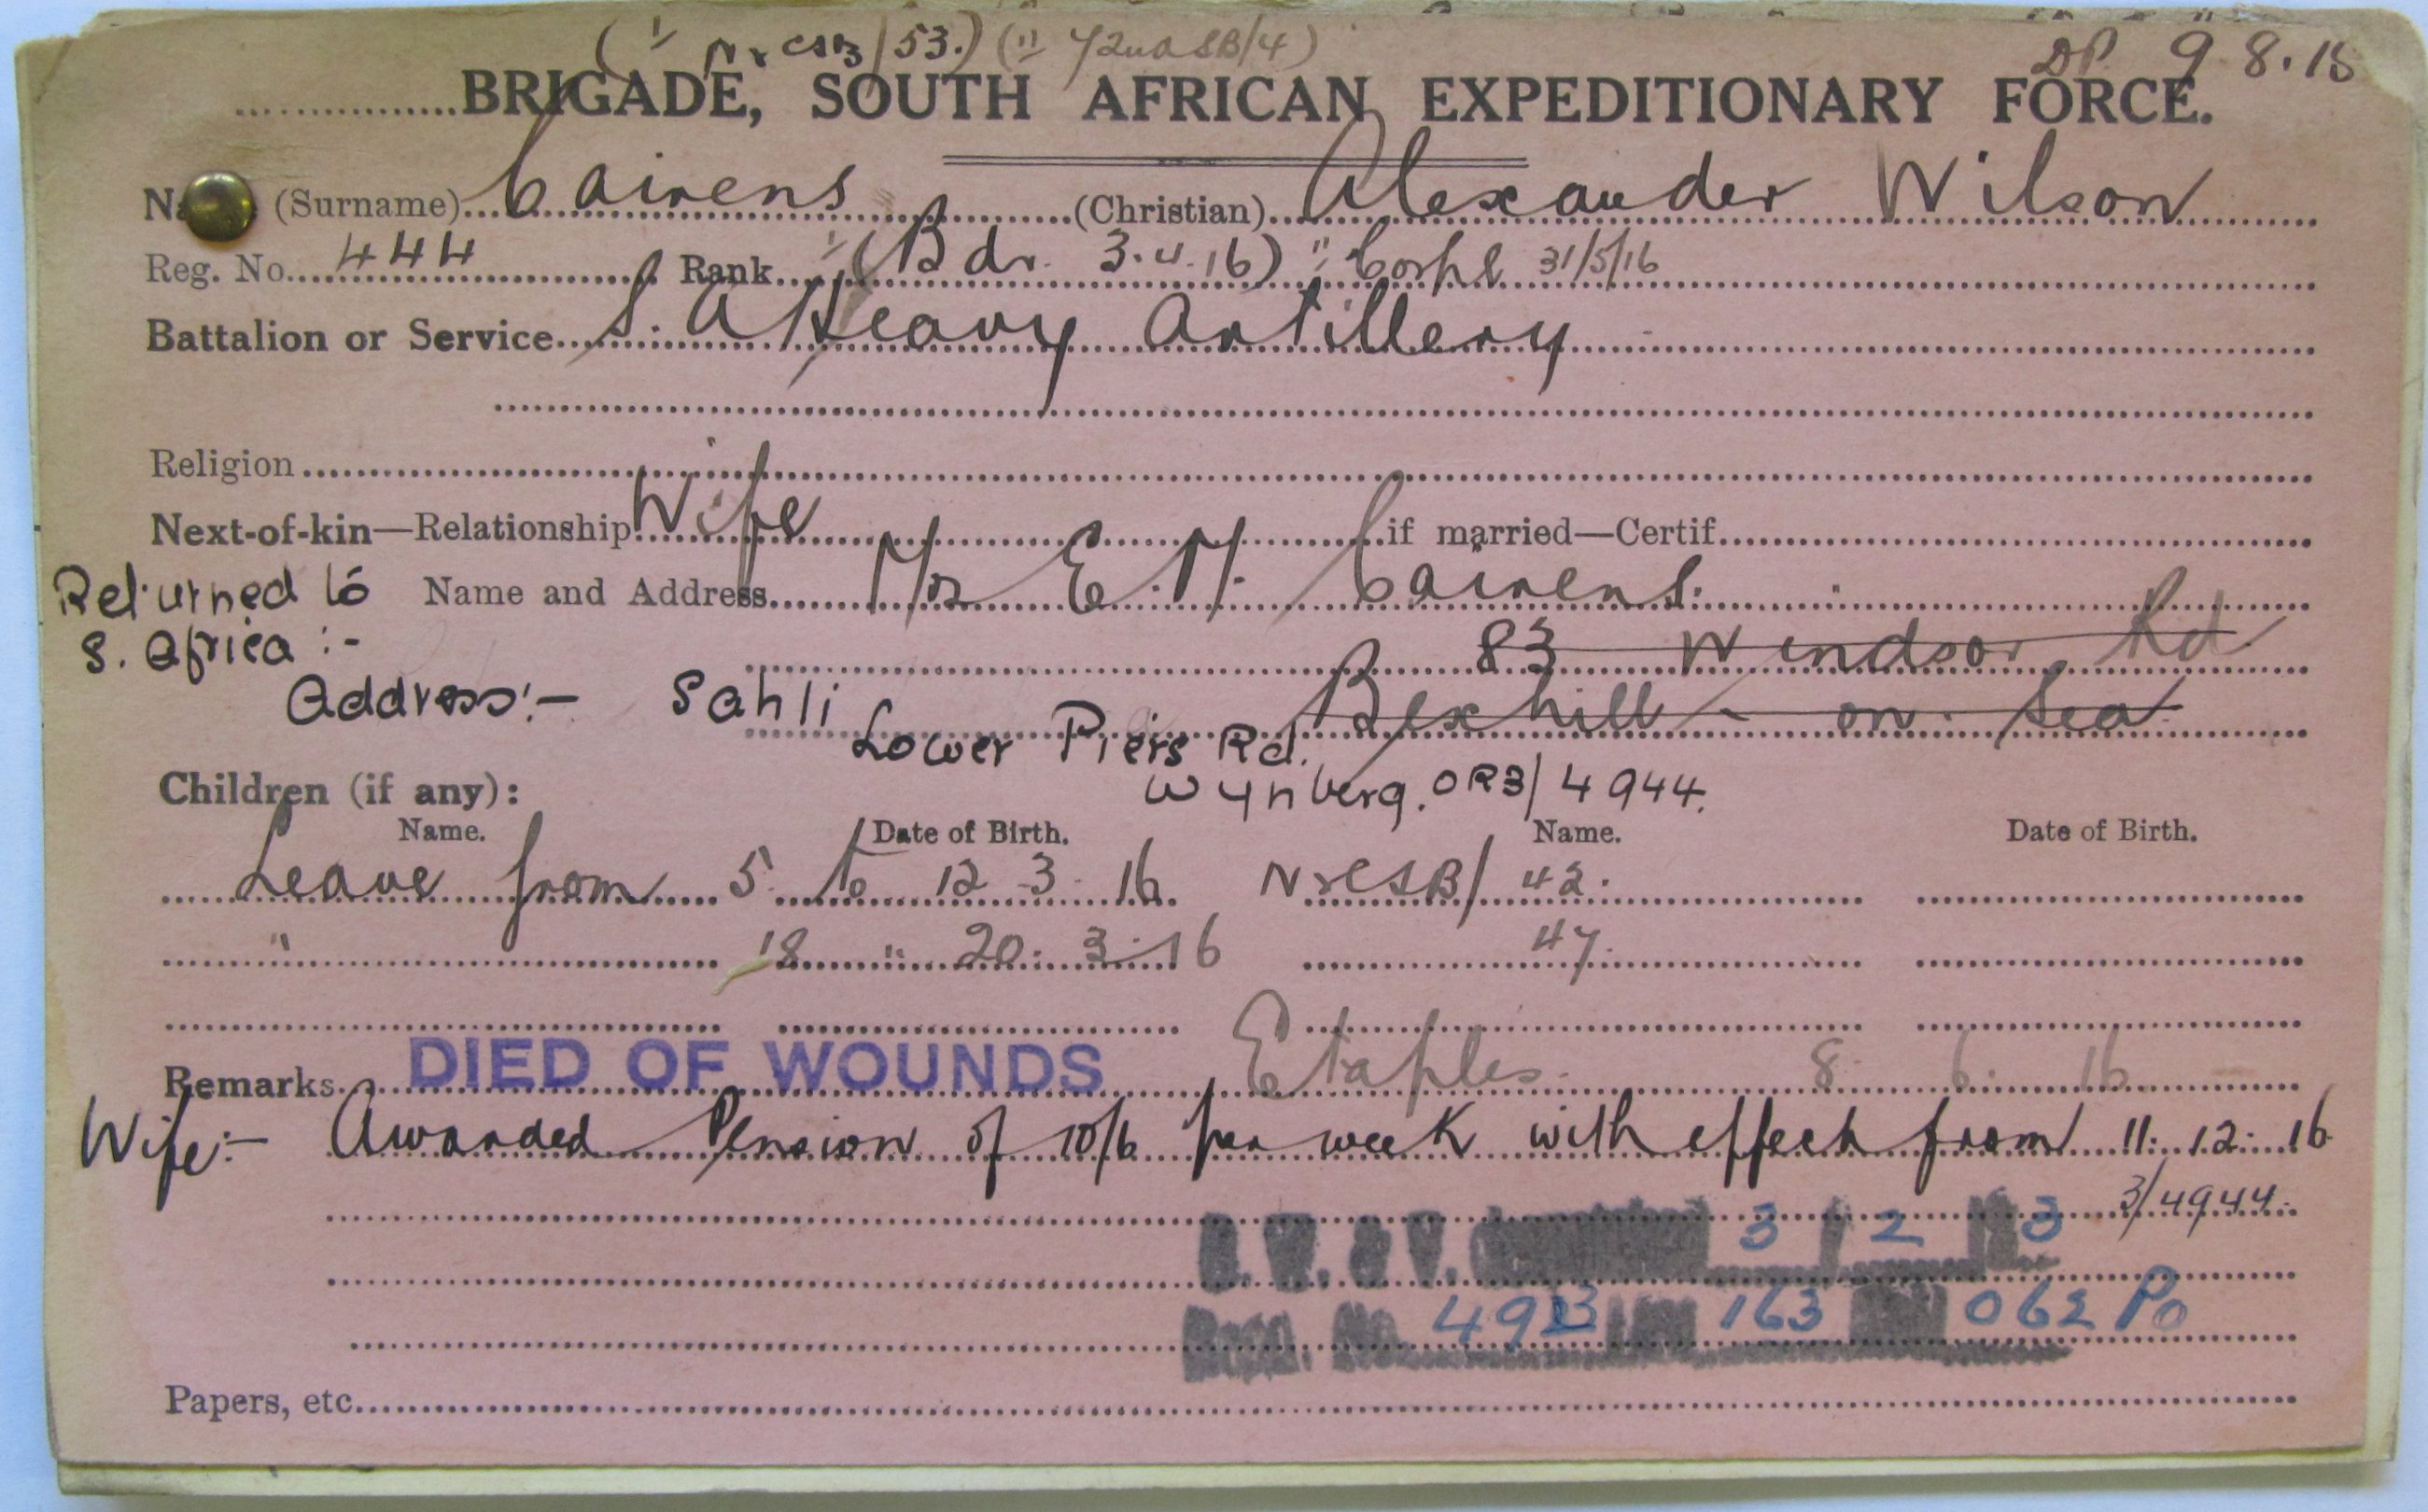 (" NrCSB/53.) (" 72ndSB/4)
DP 9 8.15
BRIGADE, SOUTH AFRICAN EXPEDITIONARY FORCE.
(Surname) Cairens (Christian) Alexander Wilson
Reg. No. 444 Rank (Bdr. 3.4.16) " Corpl 31/5/16
Battalion or Service S. A Heavy Artillery
Religion
Next-of-kin—Relationship Wife if married—Certif.
Returned to Name and Address Mrs E. M. Cairens.
S. Africa :- 83 Windsor Rd
Address:- Sahli Bexhill - on - Sea
Lower Piers Rd.
Wynberg. OR3/4944.
Children (if any):
Name. Date of Birth. Name. Date of Birth.
Leave from 5 to 12 3 16 NrCSB/ 42.
" 18 " 20. 3. 16 47.
Remarks DIED OF WOUNDS Etaples 8 6. 16
Wife:- Awarded Pension of 10/6 per week with effect from 11. 12. 16
3/4944.
3 / 2 3
No. 163 062 Po
Papers, etc.